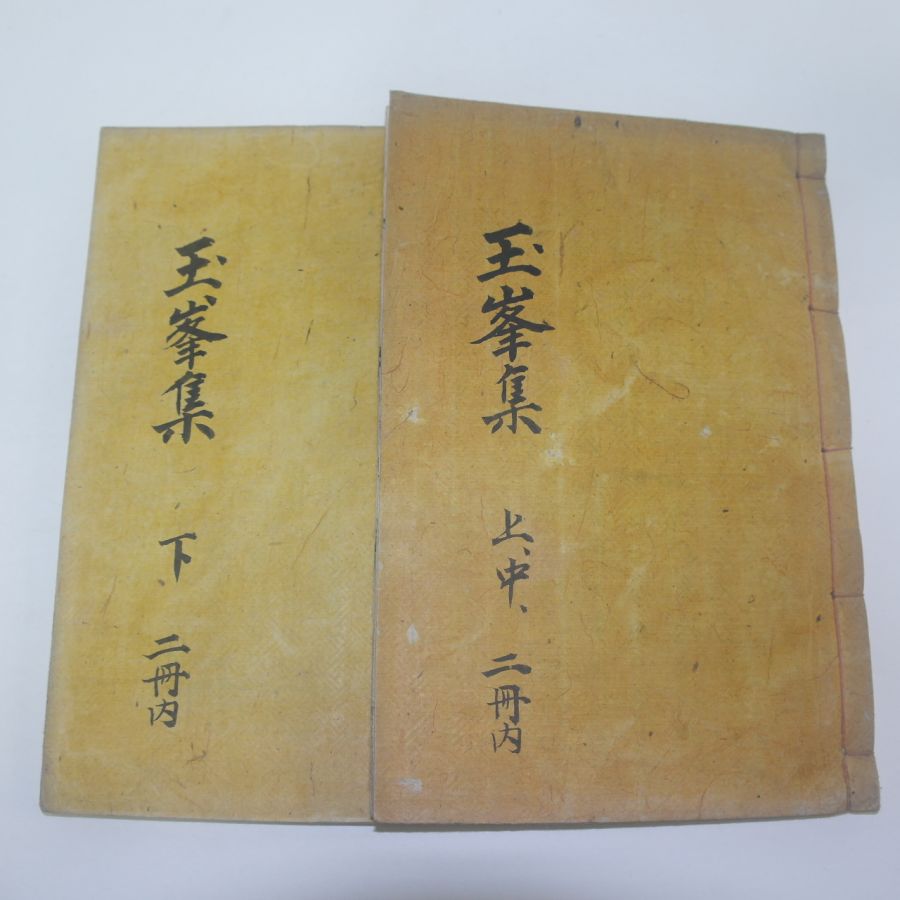 玉峯集
上、中、
二冊内
玉峯集
下
二冊内